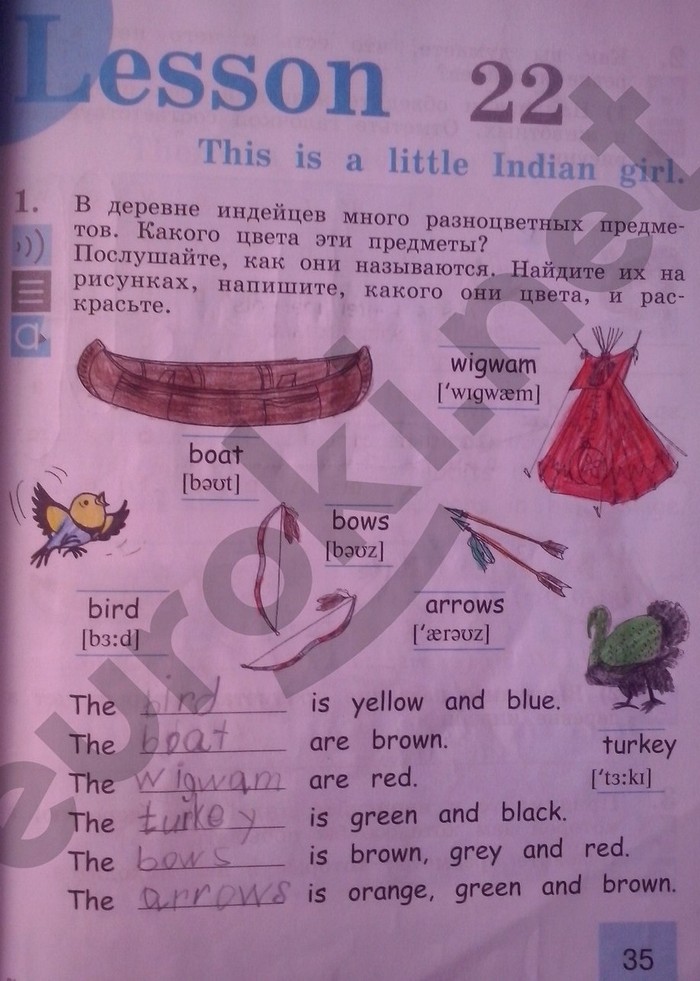 Lesson 22
This is a little Indian girl.
1. В деревне индейцев много разноцветных предме-
тов. Какого цвета эти предметы?
Послушайте, как они называются. Найдите их на
рисунках, напишите, какого они цвета, и рас-
красьте.
a
wigwam
[ˈwɪgwæm]
boat
[bəʊt]
bows
[bəʊz]
bird
[bɜ:d]
arrows
[ˈærəʊz]
turkey
[ˈtɜ:kɪ]
The bird is yellow and blue.
The boat are brown.
The wigwam are red.
The turkey is green and black.
The bows is brown, grey and red.
The arrows is orange, green and brown.
35
euroki.net